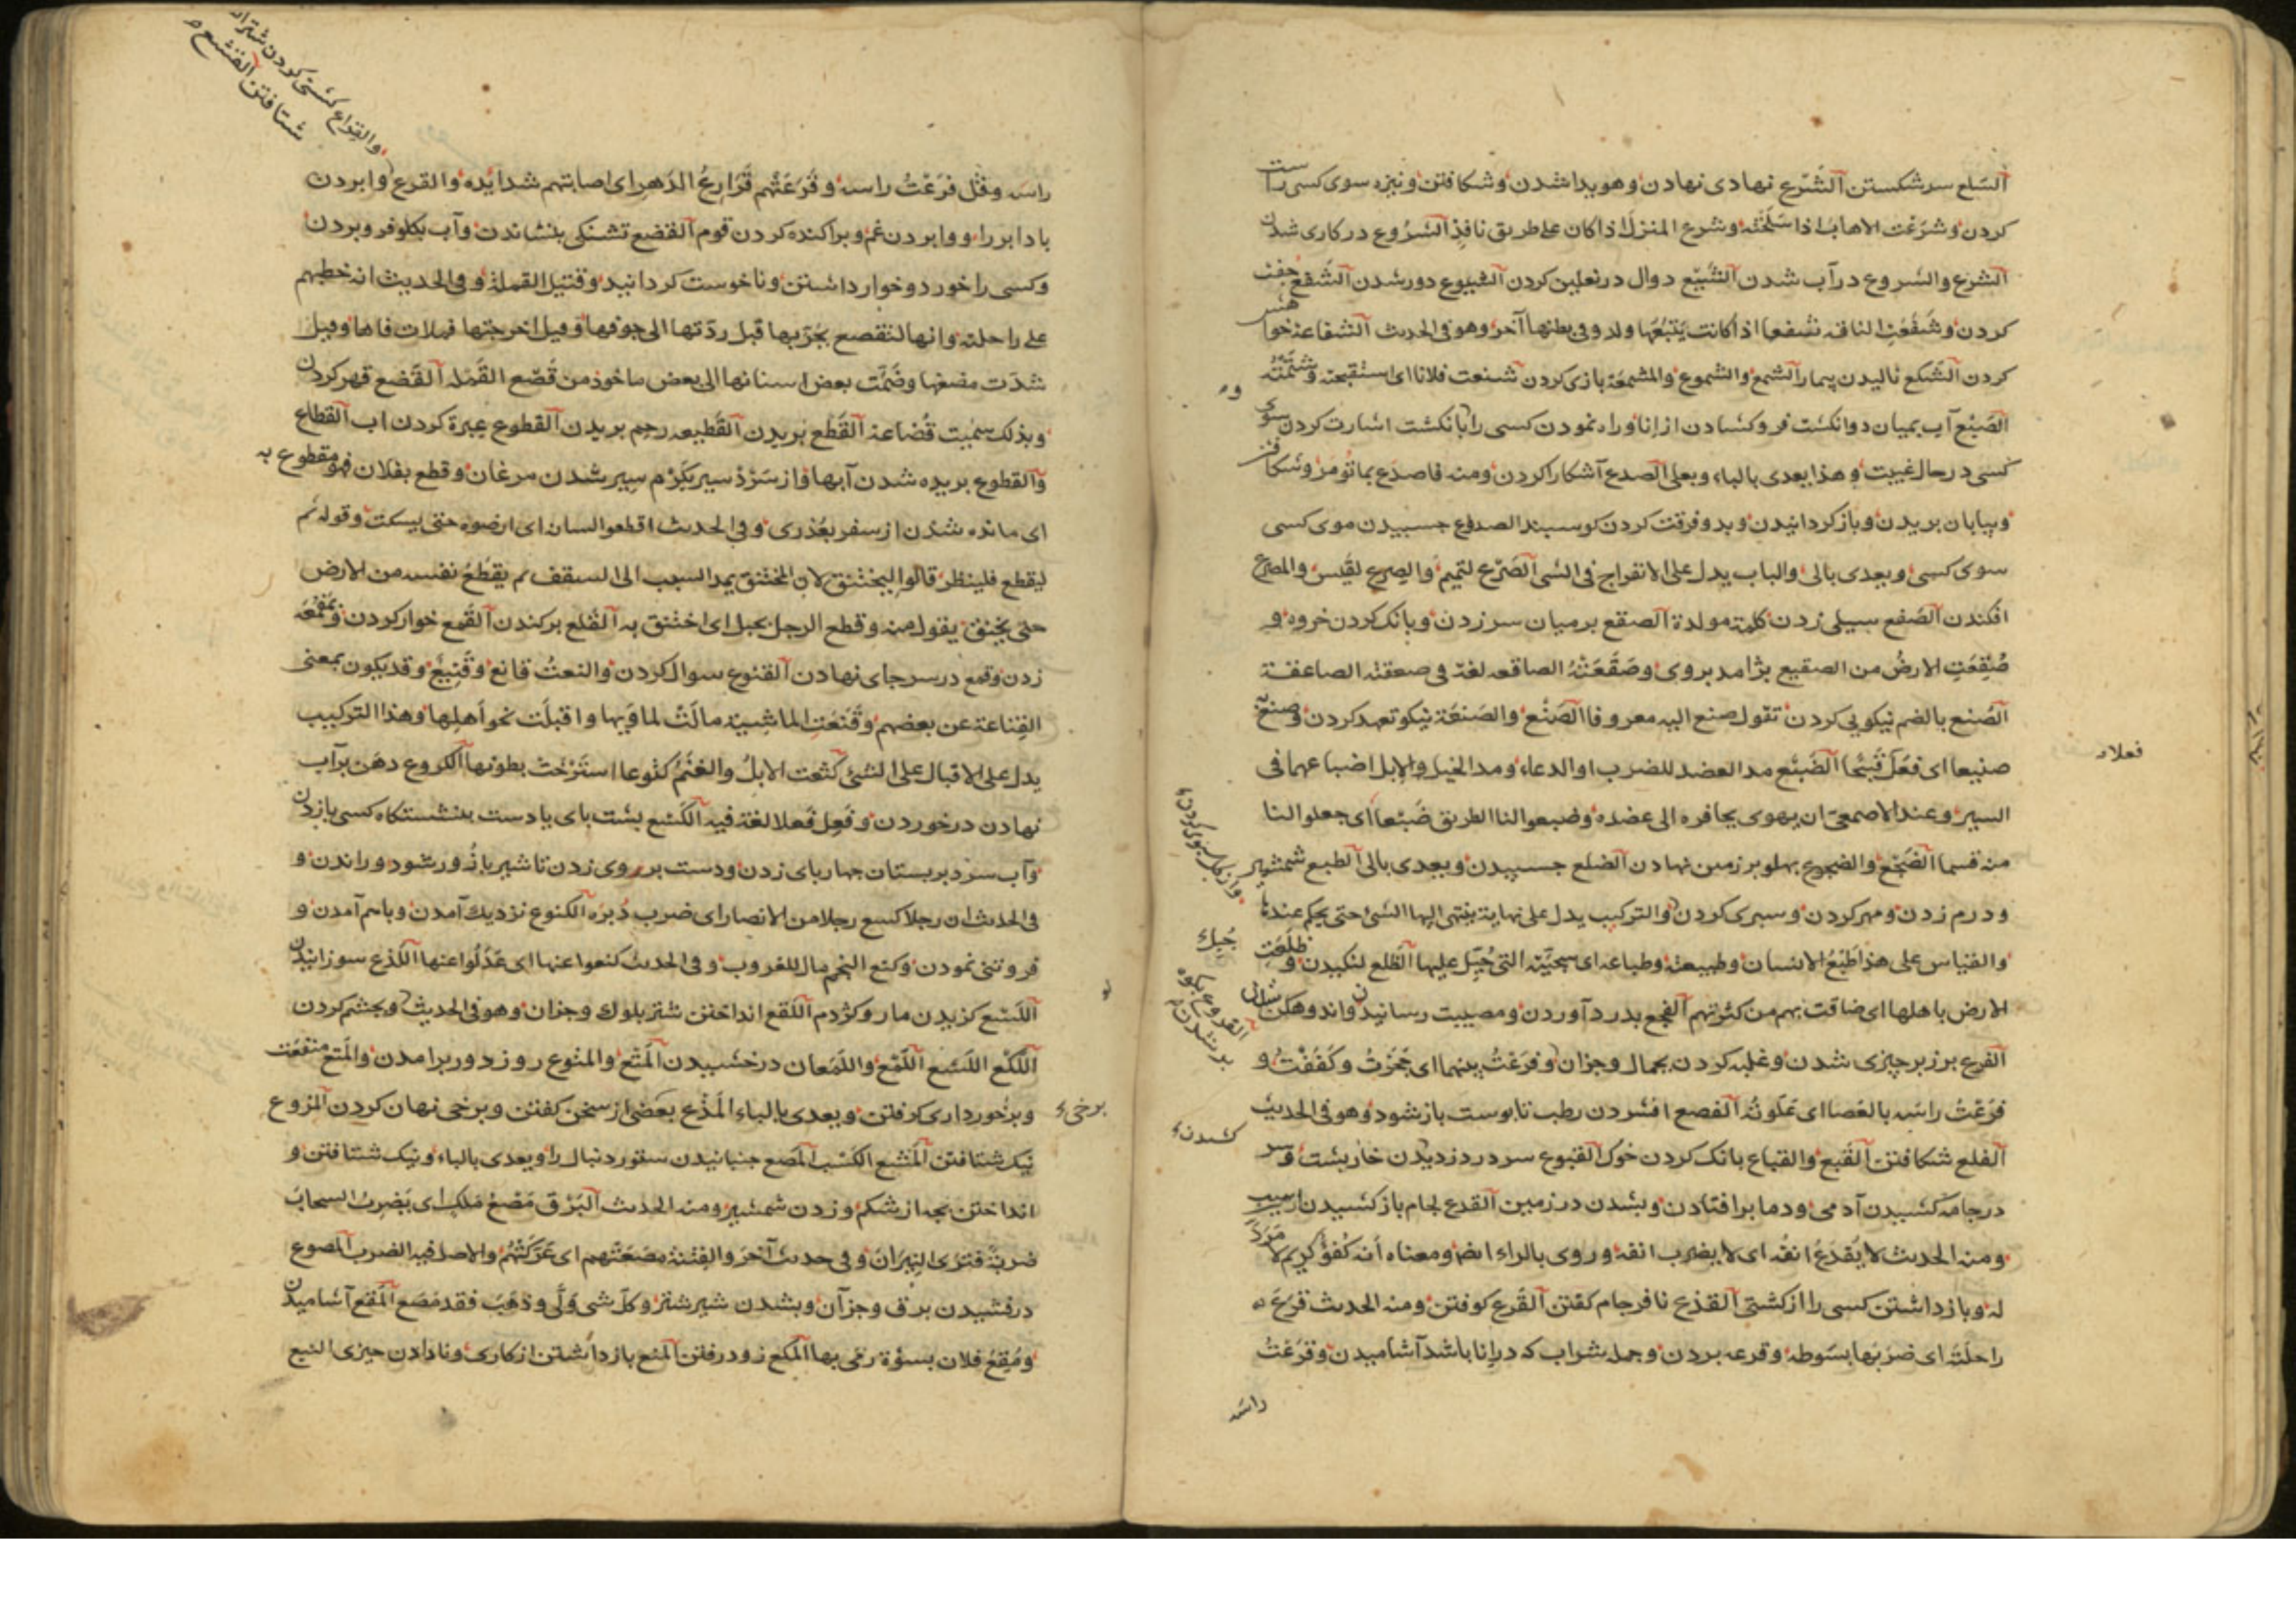 السّلع سر شکستن الشّرع نهادی نهادن و هویدا شدن و شکافتن و نیزه سوی کسی راست
کردن و شرعت الاهاب اذا سلخته و شرع المنزل اذا کان علی طریق نافذ الشروع در کاری شدن
الشرع والشروع در آب شدن الشّسع دوال در نعلین کردن الشسوع دور شدن الشفع جفت
کردن و شفعت الناقة شفعا اذا کانت یتبعها ولد و فی بطنها آخر و هو فی الحدیث الشفاعة خواهش
کردن الشّکع نالیدن بیمار الشمع والشموع والمشمعة بازی کردن شنعت فلانا ای استقبحته و شتمته
الصّبع آب بمیان دو انکشت فرو کشادن از انا و راه نمودن کسی را بانکشت اشارت کردن سوی
کسی در حال غیبت و هذا یعدی بالباء و بعلی الصدع آشکارا کردن و منه فاصدع بما تؤمر و شکافتن
و بیابان بریدن و باز کردانیدن و بدو فرقت کردن کوسبند الصدوع جسبیدن موی کسی
سوی کسی و یعدی بالی والباب یدل علی الانفراج فی الشی الصّرع لتمیم والصرع لقیس والمصرع
افکندن الصّفع سیلی زدن کلمة مولدة الصقع بر میان سر زدن و بانک کردن خروه و
صُقِعَت الارضُ من الصقیع بژامد بروی و صَقَعَتْهُ الصاقعه لغة فی صعقته الصاعقة
الصُنع بالضم نیکویی کردن تقول صنع الیه معروفا الصَنْع والصَنعَة نیکو تعهد کردن و صنع به
صنیعا ای فَعَلَ قبیحا الضَبْع مد العضد للضرب او الدعاء و مد الخیل والابل اضباعهما فی
السیر و عند الاصمعی ان یهوی بحافره الی عضده و ضبعوا لنا الطریق ضَبْعا ای جعلوا لنا
منه قسما الضَجْع والضجوع بهلو بر زمین نهادن الضلع جسبیدن و یعدی بالی الطبع شمشیر
و درم زدن و مهر کردن و سبری کردن والترکیب یدل علی نهایة ینتهی الیها الشی حتی یختم عندها
والقیاس علی هذا طَبْعُ الانسان و طبیعته و طباعه ای سجیّته التی جُبِل علیها الظّلع لنکیدن و ظلعت
الارض باهلها ای ضاقت بهم من کثرتهم الفجع بدرد آوردن و مصیبت رسانیدن و اندوهکن
الفرع برزبر چیزی شدن و غلبه کردن بجمال و جزان و فَرَعْتُ بینهما ای حجزتُ و کَفَفْتُ و
فَرَعْتُ راسَه بالعصا ای عَلَوتُه الفصع افشردن رطب تا بوست باز شود و هو فی الحدیث
الفلع شکافتن القَبع والقباع بانک کردن خوک القبوع سر در دزدیدن خاربشت و سر
در جامه کشیدن آدمی و دما بر افتادن و بشدن در زمین القدع لجام باز کشیدن اسب
و منه الحدیث لا یُقْدَعُ انفُه ای لا یضرب انفه و روی بالراء ایضا و معناه انه کُفْؤٌ کریم لا مَرَدَّ
له و بازداشتن کسی را از کشتی القذع نافرجام کفتن القَرع کوفتن و منه الحدیث قرع
راحلته ای ضربها بسوطه و قرعه بردن و جمله شراب که در انا باشد آشامیدن و قرعت
راسه
فعلا
کشیدن
القدوع بکوه
بر شدن
راسه و قیل فَرَعْتُ راسه و قَرَعَتْهم قَوارِعُ الدهر ای اصابتهم شدایده والقرع وا بردن
باد ابر را و وا بردن غم و براکنده کردن قوم القصع تشنکی بنشاندن و آب بکلو فرو بردن
و کسی را خورد و خوار داشتن و ناخوست کردانید و قتیل القملة و فی الحدیث انه خطبهم
علی راحلته و انها لتقصع بجرّتها قیل ردّتها الی جوفها و قیل اخرجتها فملأت فاها و قیل
شدّت مضغها و ضمّت بعض اسنانها الی بعض ماخوذ من قصع القمله القضع قهر کردن
و بذلک سمیت قُضاعة القَطْع بریدن القَطیعه رحم بریدن القطوع عبرة کردن آب القطاع
والقطوع بریده شدن آبها و از سرد سیر بکرم سیر شدن مرغان و قطع بفلان فهو مقطوع به
ای مانده شدن از سفر بعذری و فی الحدیث اقطعوا لسانه ای ارضوه حتی یسکت و قوله ثم
لیقطع فلینظر قالوا لیختنق لان المختنق یمد السبب الی السقف ثم یقطع نفسه من الارض
حتی یختنق یقول منه و قطع الرجل بحبل ای اختنق به القلع برکندن القمع خوار کردن و بمقمعه
زدن و قمع در سر جای نهادن القنوع سوال کردن والنعتُ قانع و قَنیع و قد یکون بمعنی
القناعة عن بعضهم و قَنَعَت الماشیة مالت لمأویها و اقبلت نحو اهلها و هذا الترکیب
یدل علی الاقبال علی الشئ کَثَعت الابلُ والغنمُ کثوعا استرخت بطونها الکروع دهن بر آب
نهادن در خوردن و فَعِل فَعلا لغة فیه الکَسْع بشت بای یا دست بنشستکاه کسی باز زدن
و آب سرد بر بستان جهاربای زدن و دست بر روی زدن تا شیر باز ور شود و راندن و
فی الحدیث ان رجلا کسع رجلا من الانصار ای ضرب دُبرَه الکنوع نزدیک آمدن و باهم آمدن و
فروتنی نمودن و کنع النجم مال للغروب و فی الحدیث کنعوا عنها ای عَدَلُوا عنها اللذع سوزانیدن
اللَسْع کزیدن مار و کژدم اللقع انداختن شتر بلوک و جزان و هو فی الحدیث و بجشم کردن
اللکع اللسع اللَمْع واللَمَعان درخشیدن المَتْع والمتوع روز دور برامدن والمَتع منفعت
و برخورداری کرفتن و یعدی بالباء المَذْع بعضی از سخن کفتن و برخی نهان کردن المزوع
نیک شتافتن المَشْع الکسب المَصع جنبانیدن ستور دنبال را و یعدی بالباء و نیک شتافتن و
انداختن بچه از شکم و زدن شمشیر و منه الحدیث البَرْق مَصْعُ مَلَکٍ ای یَضرِبُ السحابَ
ضربةً فتری النیرانَ و فی حدیث آخر والفتنة مَصَعَتْهم ای عَرَکَتْهُم والاصل فیه الضرب المصوع
درفشیدن برق و جزآن و بشدن شیر شتر و کل شی وَلّی و ذهب فقد مَصَع المَقع آشامیدن
و مُقِعَ فلان بسوءة رمی بها المکع زود رفتن المنع بازداشتن از کاری و نادادن چیزی النبع
برخی
والقراع کشتی کردن شتر
شتافتن القشع